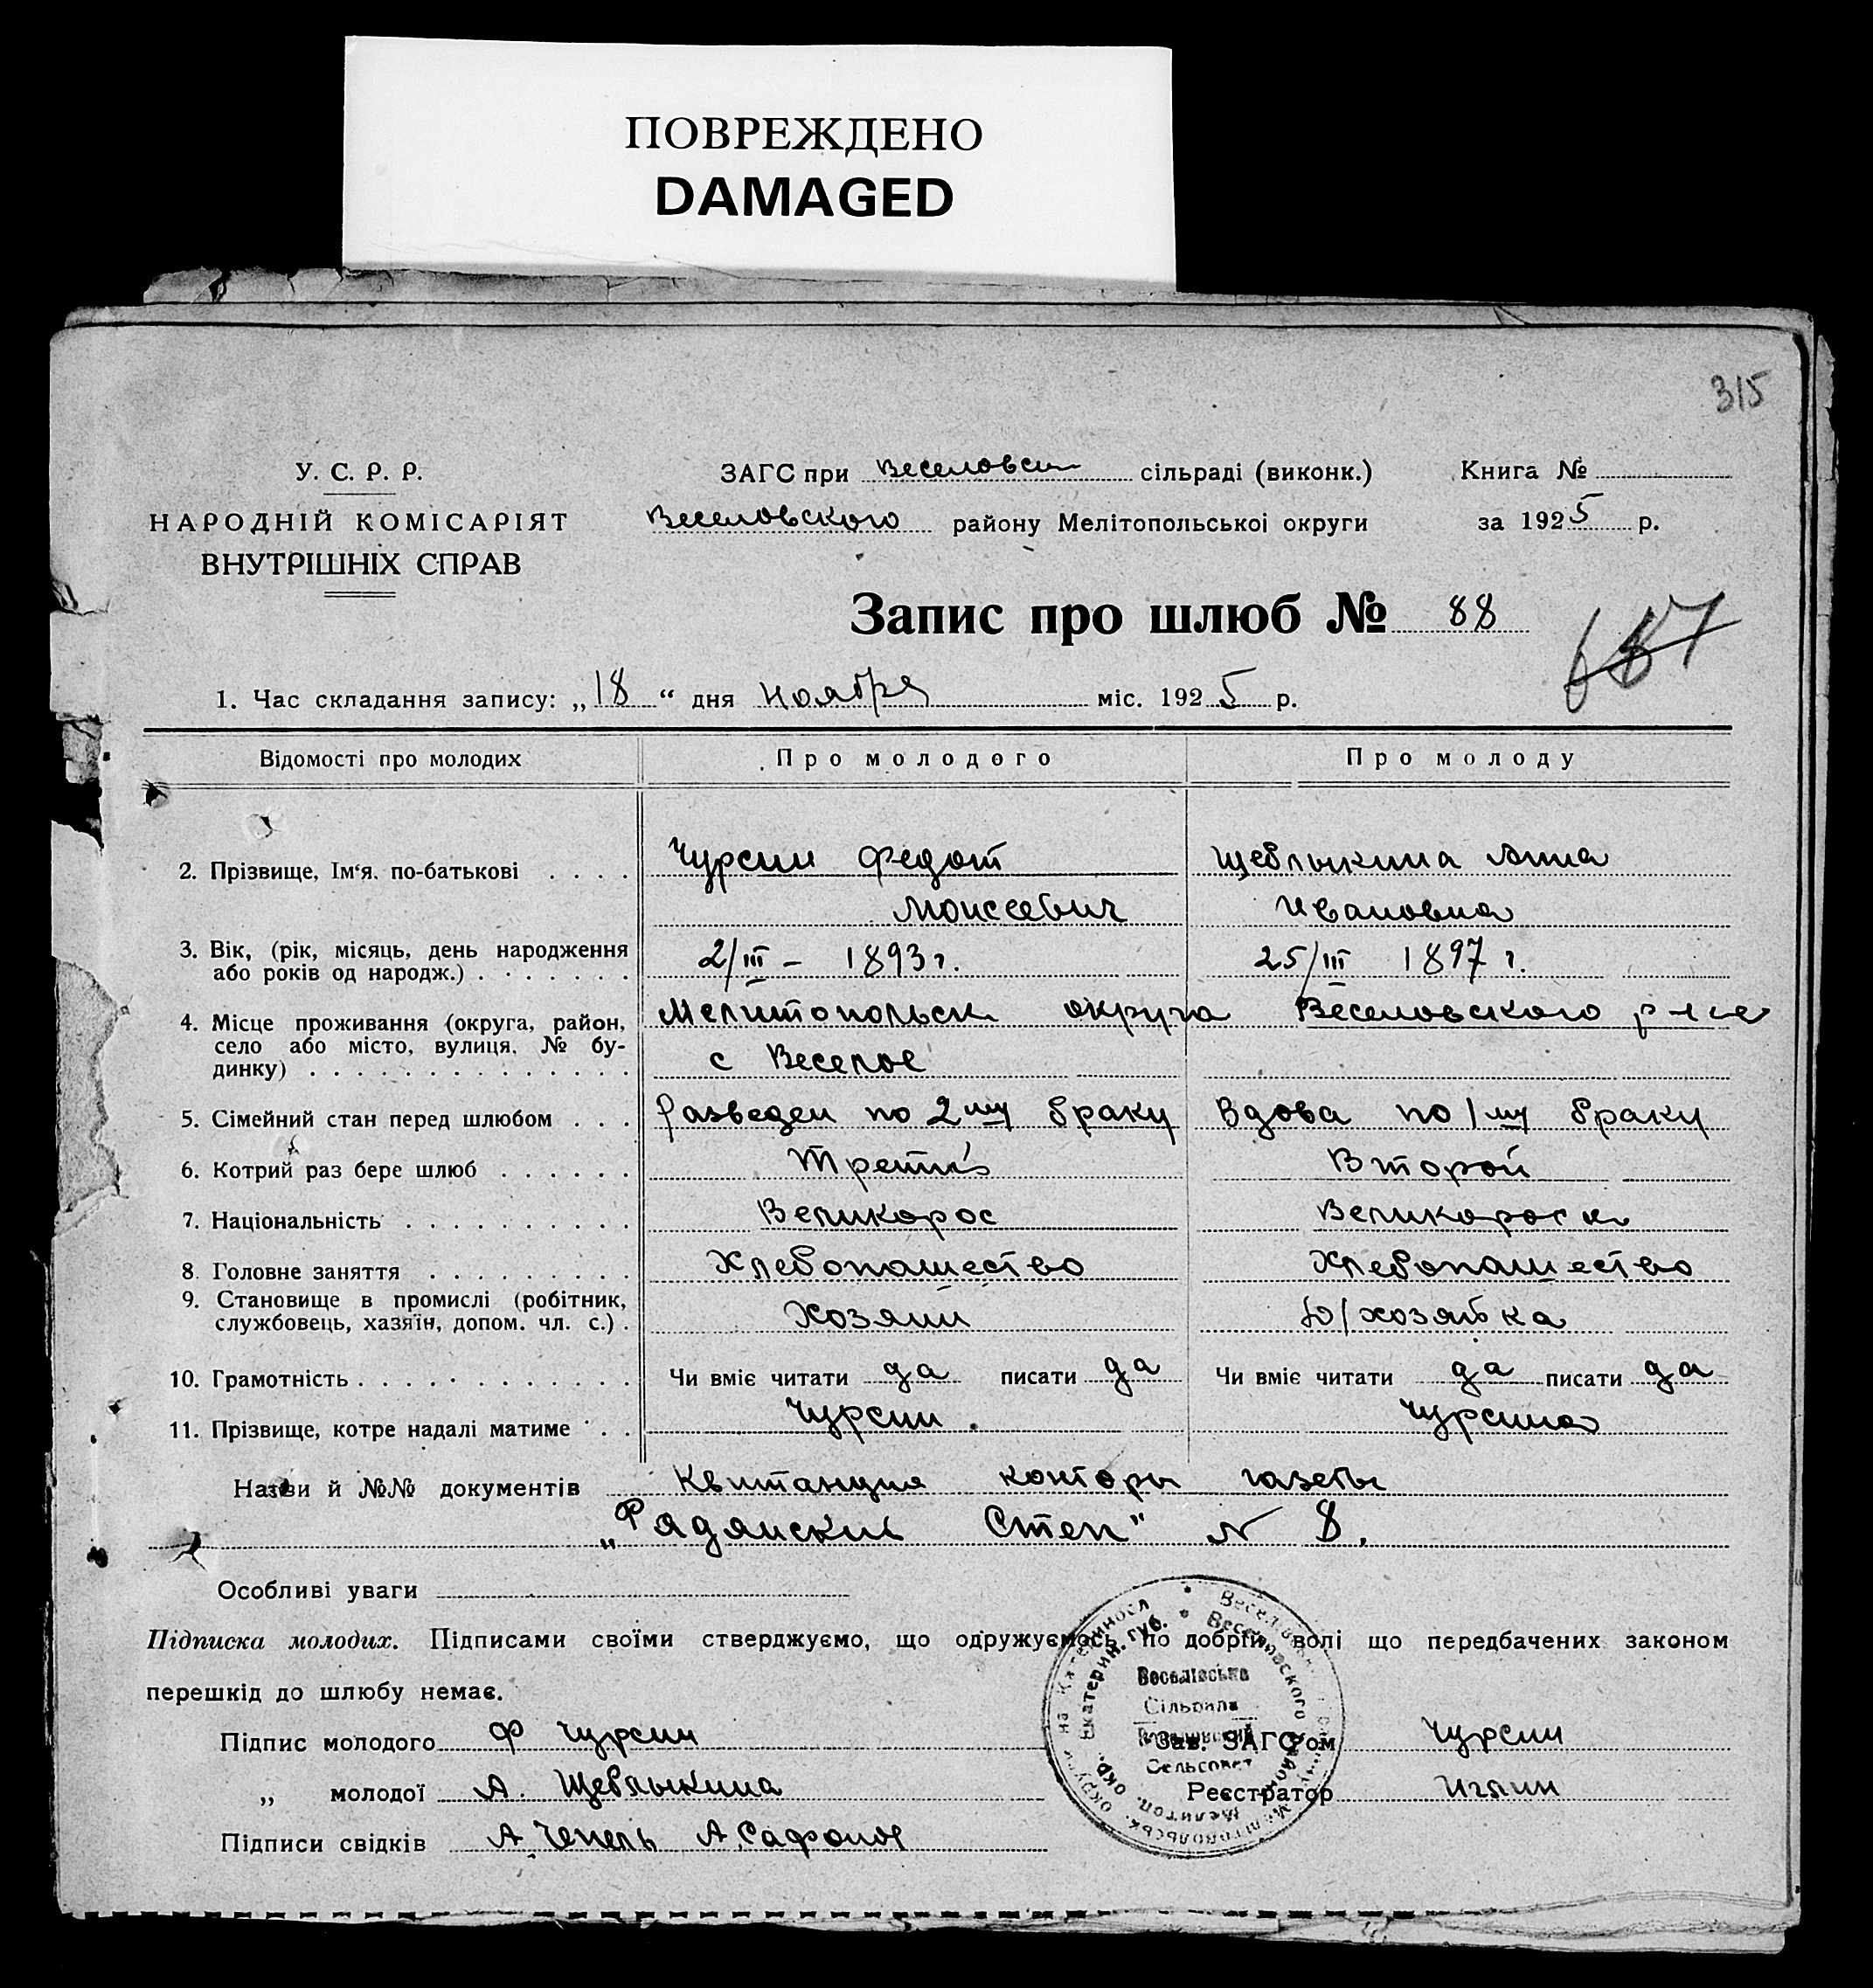 ПОВРЕЖДЕНО
DAMAGED
315
У. С. Р. Р.
НАРОДНІЙ КОМІСАРІЯТ
ВНУТРІШНІХ СПРАВ
ЗАГС при Веселовск сільраді (виконк.) Книга №
Веселовского району Мелітопольської округи за 1925 р.
Запис про шлюб № 88
687
1. Час складання запису: „18“ дня Ноября міс. 1925 р.
Відомості про молодих Про молодого Про молоду
2. Прізвище, Ім‘я, по-батькові Чурсин Федот Щеблыкина Анна
Моисеевич Ивановна
3. Вік, (рік, місяць, день народження
або років од народж.) 2/III – 1893 г. 25/III 1897 г.
4. Місце проживання (округа, район, Мелитопольск округа Веселовского р-на
село або місто, вулиця, № бу-
динку) с Веселое
5. Сімейний стан перед шлюбом Разведен по 2му браку Вдова по 1му браку
6. Котрий раз бере шлюб Третий Второй
7. Національність Великорос Великороска
8. Головне заняття Хлебопашество Хлебопашество
9. Становище в промислі (робітник,
службовець, хазяїн, допом. чл. с.) Хозяин Д/хозяйка
10. Грамотність Чи вміє читати да писати да Чи вміє читати да писати да
11. Прізвище, котре надалі матиме Чурсин. Чурсина
Назви й №№ документів Квитанция конторы газеты
„Рядянский Степ“ N 8.
Особливі уваги
Підписка молодих. Підписами своїми стверджуємо, що одружуємось по добрій волі що передбачених законом
перешкід до шлюбу немає.
Підпис молодого Ф Чурсин
„ молодої А. Щеблыкина
Підписи свідків А. Чепель А. Сафонов
Зав. ЗАГС'ом Чурсин
Реєстратор Иглин
Веселівська
Сільрада
Сельсовет